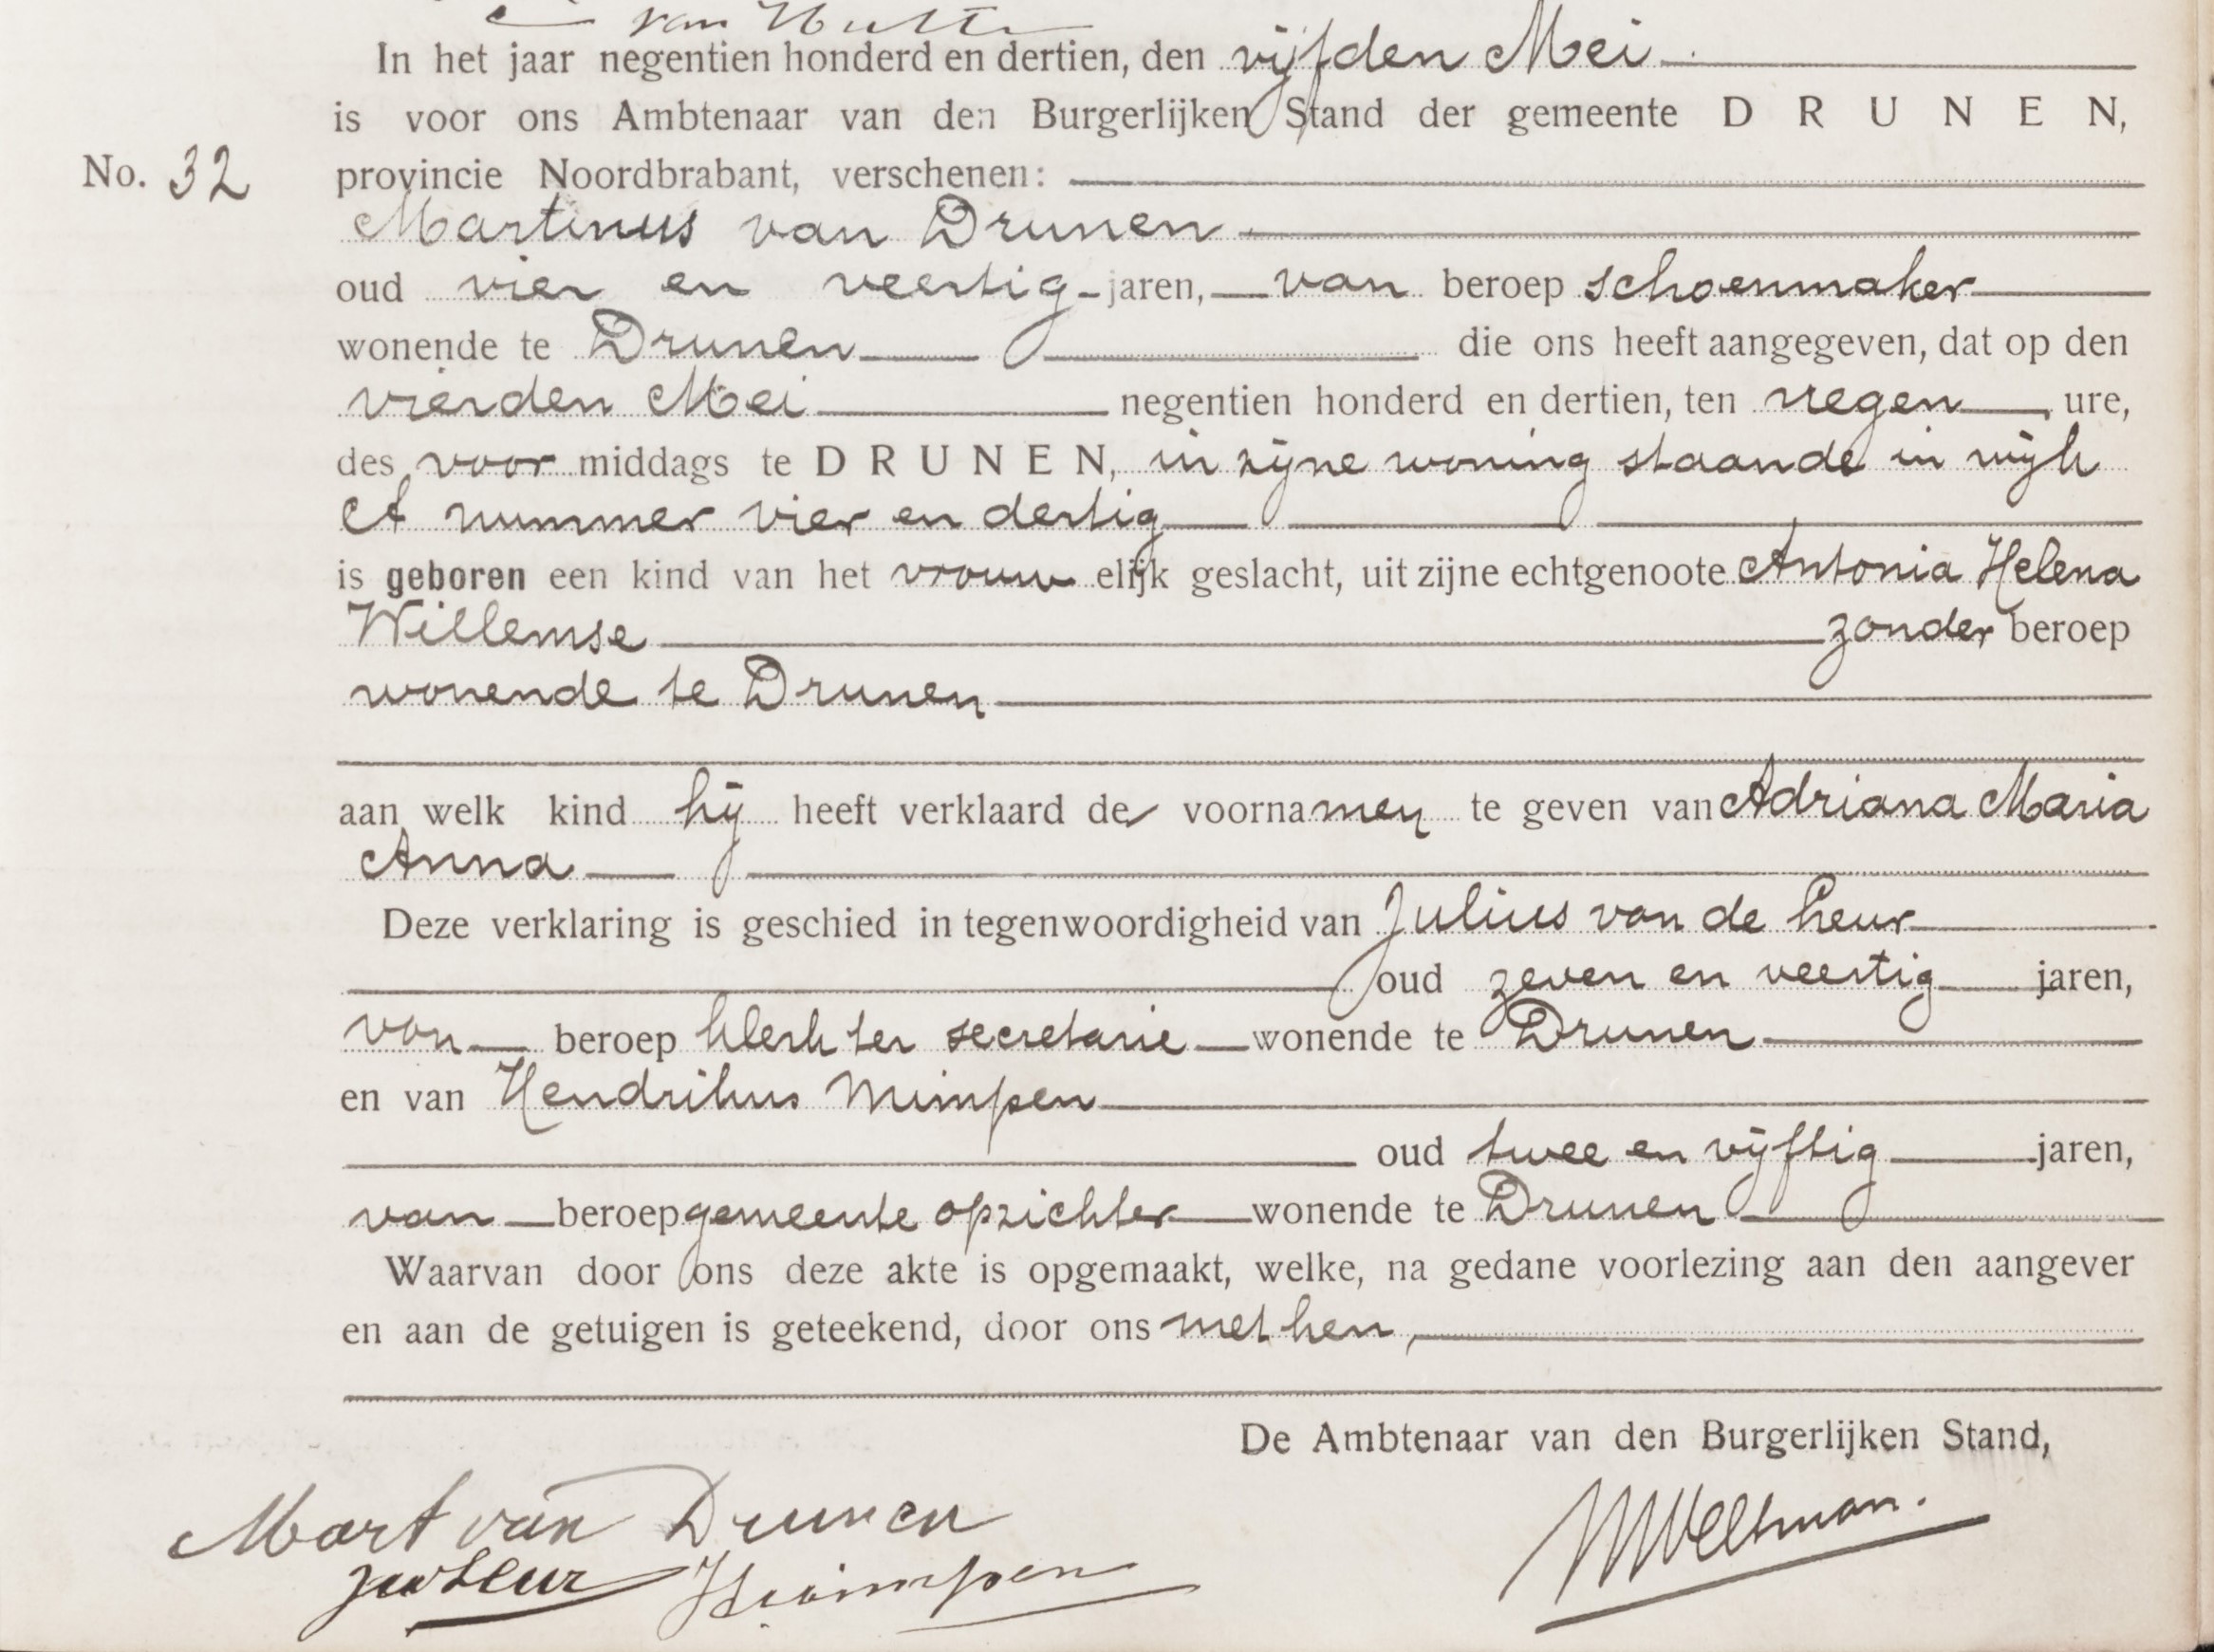 van
In het jaar negentien honderd en dertien, den vijfden Mei
is voor ons Ambtenaar van den Burgerlijken Stand der gemeente DRUNEN,
No. 32 provincie Noordbrabant, verschenen:
Martinus van Drunen
oud vier en veertig jaren, van beroep schoenmaker
wonende te Drunen die ons heeft aangegeven, dat op den
vierden Mei negentien honderd en dertien, ten negen ure,
des voor middags te DRUNEN, in zijne woning staande in wijk
A nummer vier en dertig
is geboren een kind van het vrouwelijk geslacht, uit zijne echtgenoote Antonia Helena
Willemse zonder beroep
wonende te Drunen
aan welk kind hij heeft verklaard de voornamen te geven van Adriana Maria
Anna
Deze verklaring is geschied in tegenwoordigheid van Julius van de Leur
oud zeven en veertig jaren,
van beroep klerk ter secretarie wonende te Drunen
en van Hendrikus Mimpen
oud twee en vijftig jaren,
van beroep gemeente opzichter wonende te Drunen
Waarvan door ons deze akte is opgemaakt, welke, na gedane voorlezing aan den aangever
en aan de getuigen is geteekend, door ons met hen,
De Ambtenaar van den Burgerlijken Stand,
Mart van Drunen